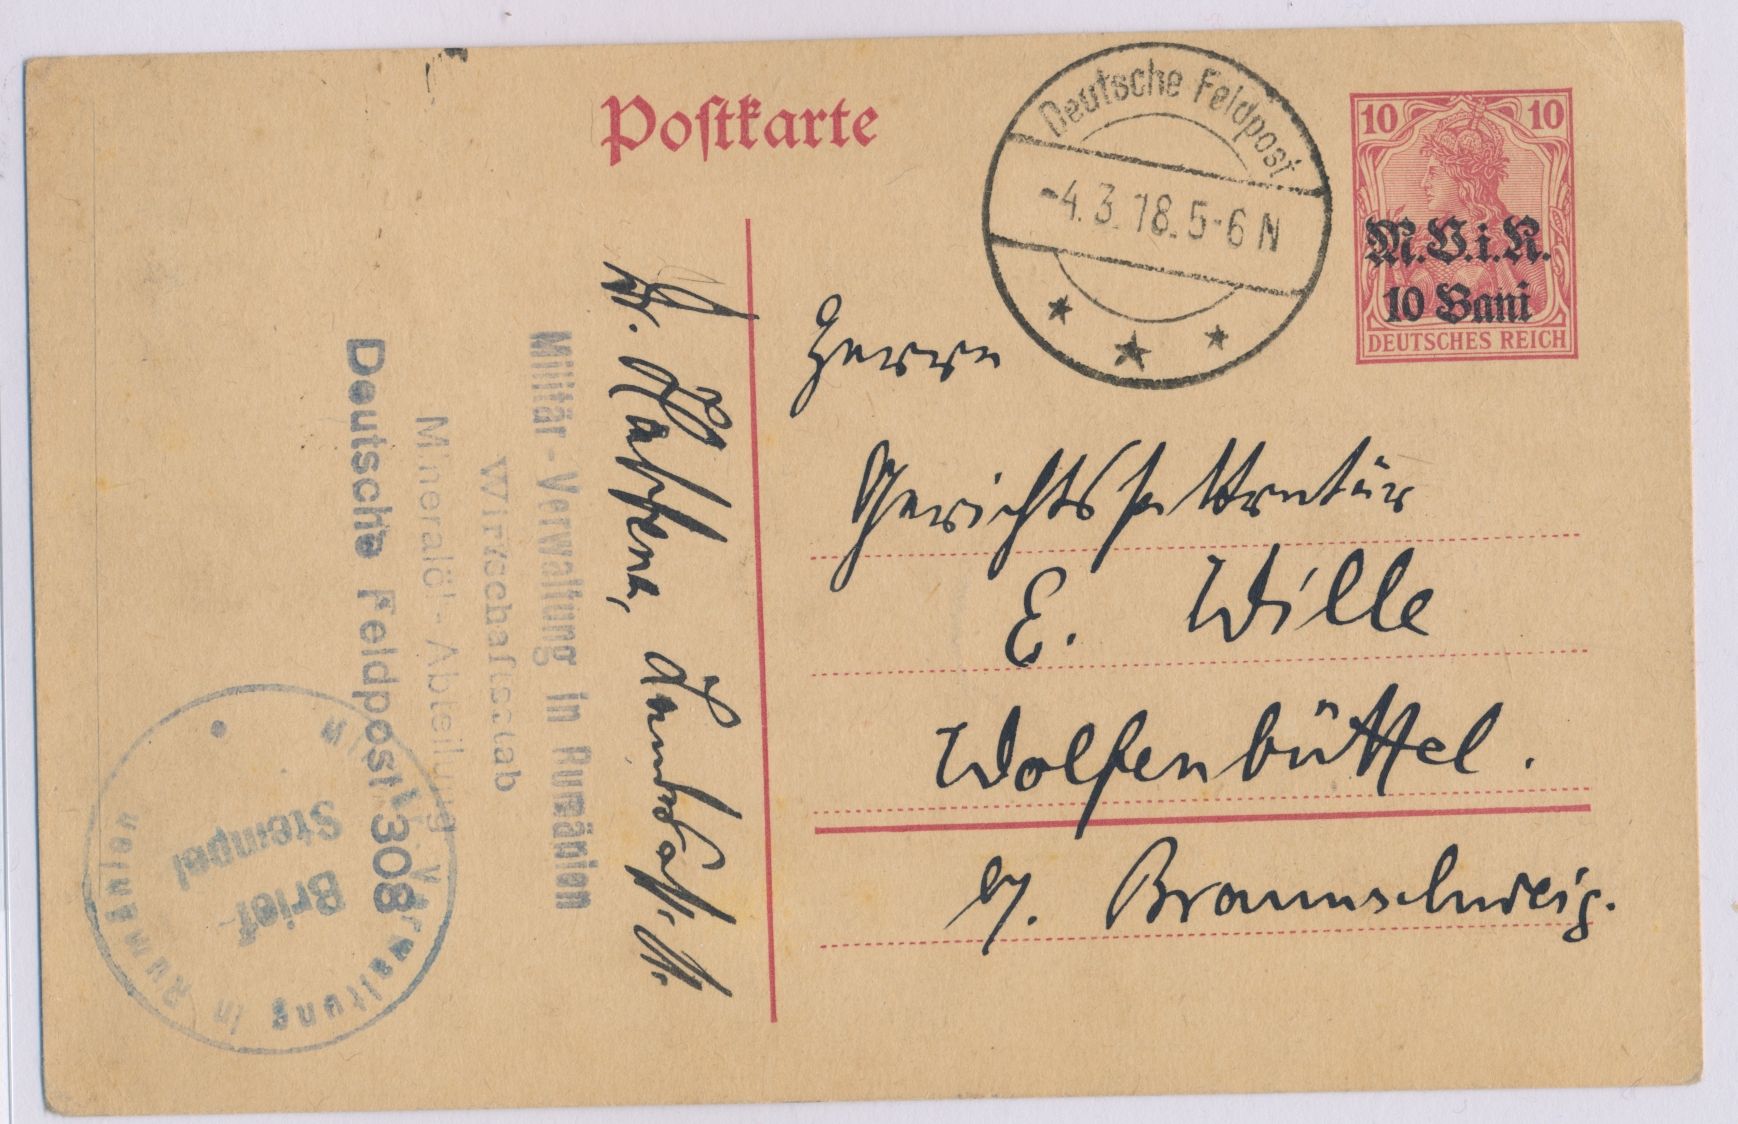 Postkarte
Deutsche Feldpost
-4.3.18.5-6N
10 10
M.V.i.R.
10 Bani
DEUTSCHES REICH
Herrn
Gerichtssekretär
E. Wille
Wolfenbüttel.
b/. Braunschweig.
Dr.
Militär-Verwaltung in Rumänien
Wirtschaftsstab
Mineralöl-Abteilung
Deutsche Feldpost 308
Militär Verwaltung in Rumänien
Brief-
Stempel